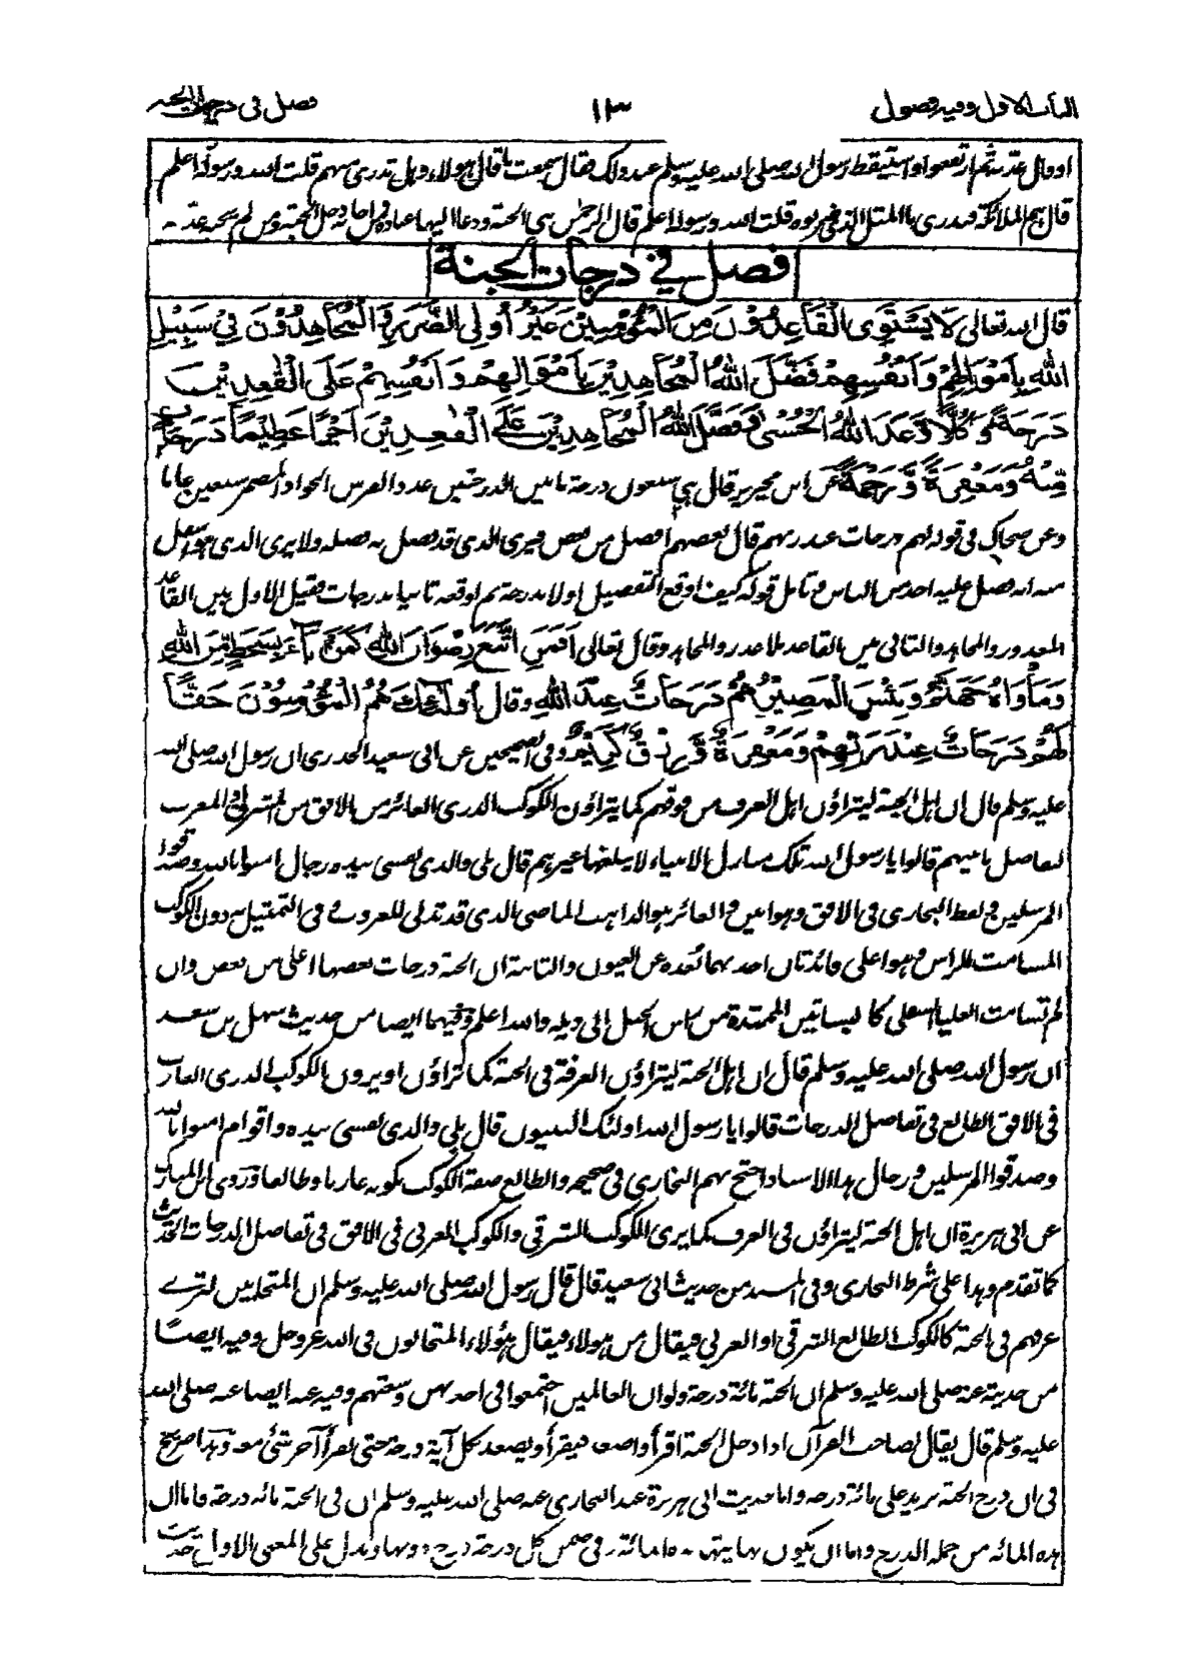 الباب الاول وفيه فصول
١٣
فصل في درجات الجنة
او قال عقدته ثم ارتفعوا واستيقظ رسول الله صلى الله عليه وسلم عند ذلك فقال سمعت ما قال هؤلاء وهل تدري من هم قلت الله ورسوله اعلم
قال هم الملائكة فتدري ما المثل الذي ضربوه قلت الله ورسوله اعلم قال الرحمن بنى الجنة ودعا اليها عباده فمن اجابه دخل الجنة ومن لم يجبه عذبه -
فصل في درجات الجنة
قال الله تعالى لَا يَسْتَوِي الْقَاعِدُوْنَ مِنَ الْمُؤْمِنِيْنَ غَيْرُ أُولِي الضَّرَرِ وَالْمُجَاهِدُوْنَ فِيْ سَبِيْلِ
اللهِ بِأَمْوَالِهِمْ وَأَنْفُسِهِمْ فَضَّلَ اللهُ الْمُجَاهِدِيْنَ بِأَمْوَالِهِمْ وَأَنْفُسِهِمْ عَلَى الْقٰعِدِيْنَ
دَرَجَةً وَكُلًّا وَّعَدَ اللهُ الْحُسْنٰى وَفَضَّلَ اللهُ الْمُجَاهِدِيْنَ عَلَى الْقٰعِدِيْنَ اَجْرًا عَظِيْمًا دَرَجَاتٍ
مِّنْهُ وَمَغْفِرَةً وَّرَحْمَةً عن ابن محيريز قال هي سبعون درجة ما بين الدرجتين عدو الفرس الجواد المضمر سبعين عاما
وعن ضحاك في قوله لهم درجات عند ربهم قال بعضهم افضل من بعض فيرى الذي قد فضل به فضله ولا يرى الذي هو اسفل
منه انه فضل عليه احد من الناس وتامل قوله كيف اوقع التفضيل اولا بدرجة ثم اوقعه ثانيا بدرجات فقيل الاول بين القاعد
المعذور والمجاهد والثاني بين القاعد بلا عذر والمجاهد وقال تعالى أَفَمَنِ اتَّبَعَ رِضْوَانَ اللهِ كَمَنْ بَآءَ بِسَخَطٍ مِّنَ اللهِ
وَمَأْوَاهُ جَهَنَّمُ وَبِئْسَ الْمَصِيْرُ هُمْ دَرَجَاتٌ عِنْدَ اللهِ وقال أُولٰئِكَ هُمُ الْمُؤْمِنُوْنَ حَقًّا
لَهُمْ دَرَجَاتٌ عِنْدَ رَبِّهِمْ وَمَغْفِرَةٌ وَّرِزْقٌ كَرِيْمٌ وفي الصحيحين عن ابي سعيد الخدري ان رسول الله صلى الله
عليه وسلم قال ان اهل الجنة ليتراؤن اهل الغرف من فوقهم كما يتراؤن الكوكب الدري الغائر من الافق من المشرق او المغرب
لتفاضل ما بينهم قالوا يا رسول الله تلك منازل الانبياء لا يبلغها غيرهم قال بلى والذي نفسي بيده رجال امنوا بالله وصدقوا
المرسلين في لفظ البخاري في الافق وهو ابين والغائر هو الذاهب الماضي الذي قد تدلى للغروب في التمثيل به دون الكوكب
المسامت للراس وهو اعلى فائدتان احدهما بعده عن العيون والثانية ان الجنة درجات بعضها اعلى من بعض وان
لم تسامت العليا السفلى كالبساتين الممتدة من راس الجبل الى ذيله والله اعلم وفيهما ايضا من حديث سهل بن سعد
ان رسول الله صلى الله عليه وسلم قال ان اهل الجنة ليتراؤن الغرفة في الجنة كما تراؤن او يرون الكوكب الدري الغارب
في الافق الطالع في تفاضل الدرجات قالوا يا رسول الله اولئك النبيون قال بلى والذي نفسي بيده واقوام امنوا بالله
وصدقوا المرسلين ورجال هذا الاسناد احتج بهم البخاري في صحيحه والطالع صفة الكوكب بكونه غاربا وطالعا وروى ابن المبارك
عن ابي هريرة ان اهل الجنة ليتراؤن في الغرف كما يرى الكوكب الشرقي والكوكب الغربي في الافق في تفاضل الدرجات الحديث
كما تقدم وهذا على شرط البخاري وفي المسند من حديث ابي سعيد قال قال رسول الله صلى الله عليه وسلم ان المتحابين لترى
غرفهم في الجنة كالكوكب الطالع الشرقي او الغربي فيقال من هؤلاء فيقال هؤلاء المتحابون في الله عز وجل وفيه ايضًا
من حديثه عنه صلى الله عليه وسلم ان الجنة مائة درجة ولو ان العالمين اجتمعوا في احدهن وسعتهم وفيه عنه ايضا عنه صلى الله
عليه وسلم قال يقال لصاحب القرآن اذا دخل الجنة اقرأ واصعد فيقرأ ويصعد بكل آية درجة حتى يقرأ آخر شئ معه وهذا صريح
في ان درج الجنة يزيد على مائة درجة واما حديث ابي هريرة عند البخاري عنه صلى الله عليه وسلم ان في الجنة مائة درجة فاما ان
هذه المائة من جملة الدرج واما ان يكون نهايتها في ضمن كل درجة درج دونها ويدل على المعنى الاول حديث